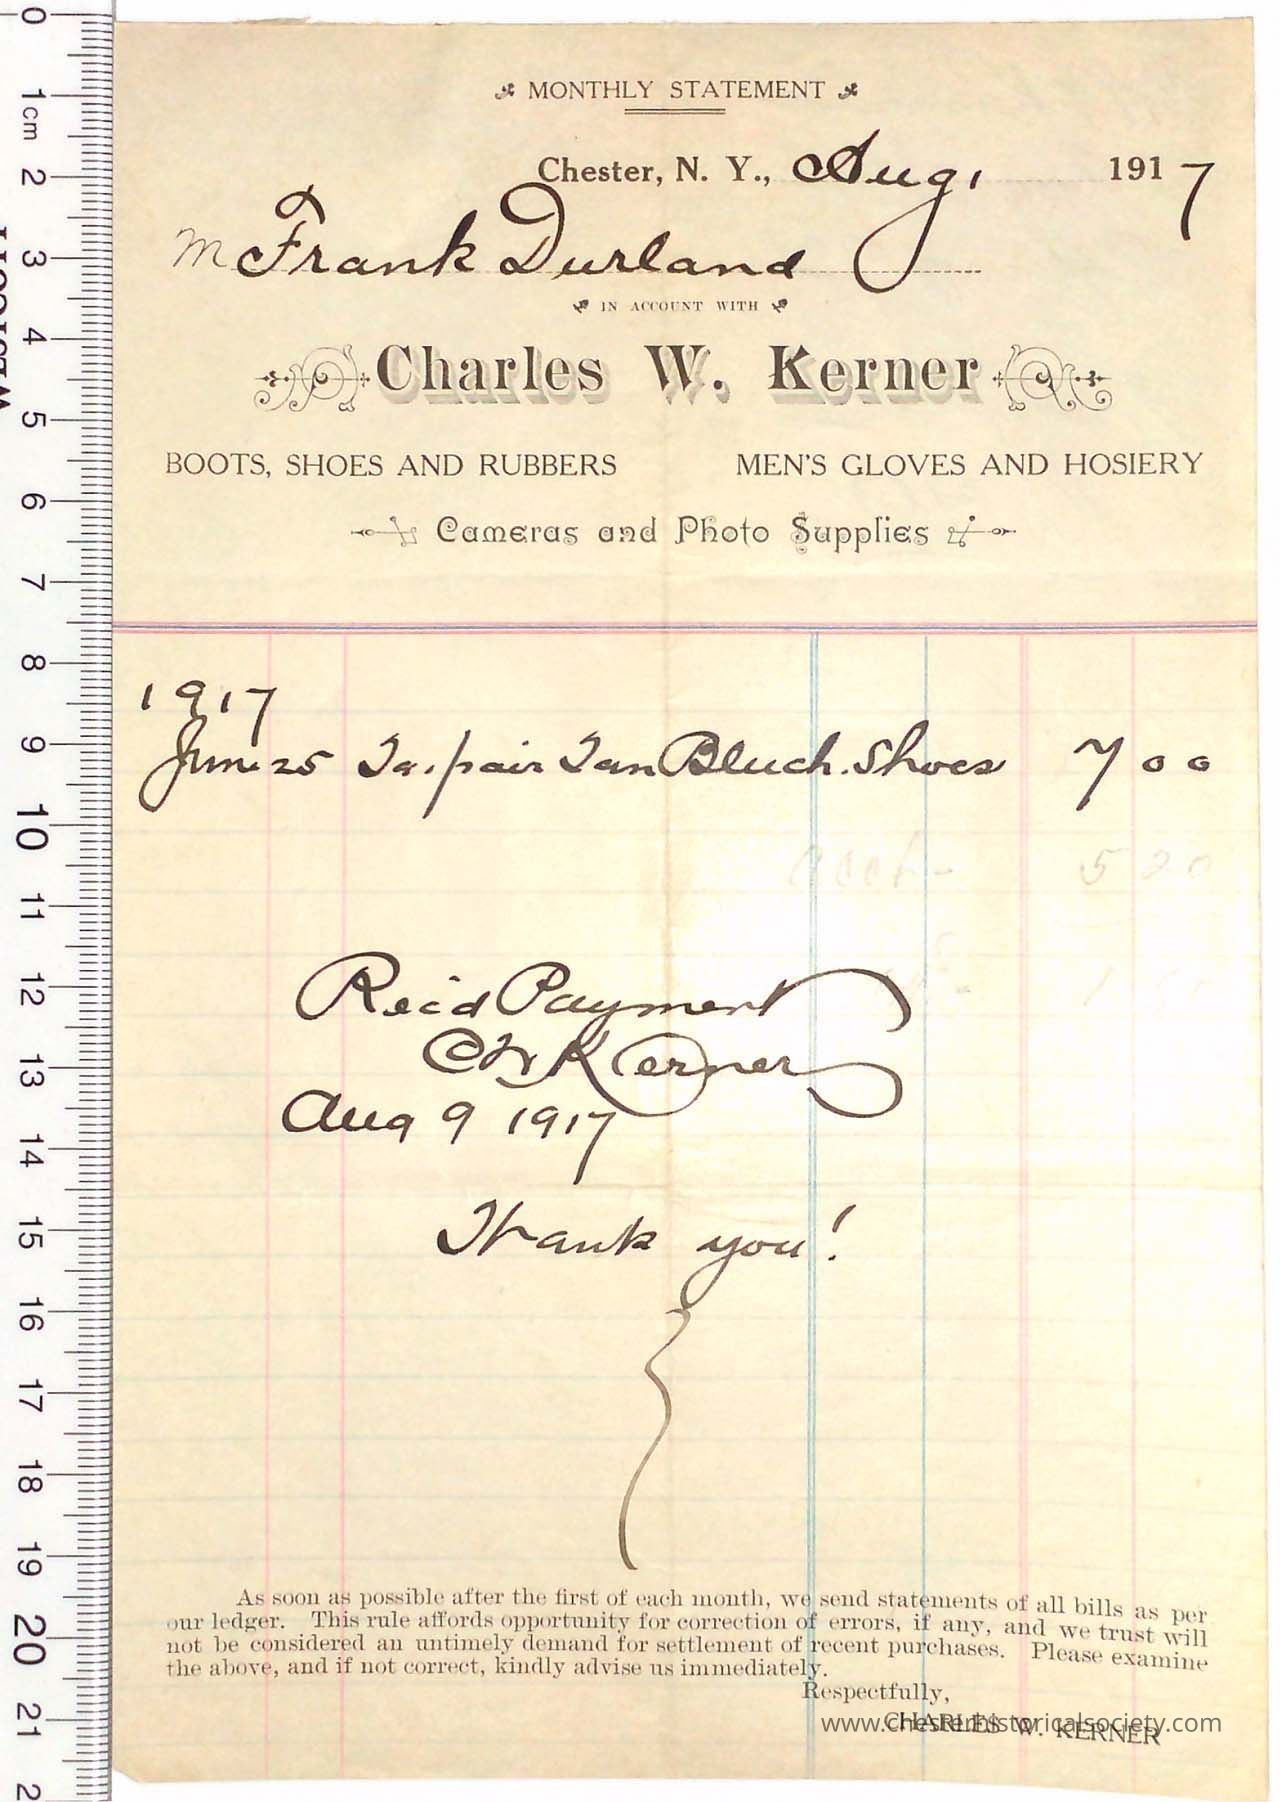 MONTHLY STATEMENT
Chester, N. Y., Aug 1 1917
M Frank Durland
IN ACCOUNT WITH
Charles W. Kerner
BOOTS, SHOES AND RUBBERS MEN'S GLOVES AND HOSIERY
Cameras and Photo Supplies
1917
June 25 To 1 pair Tan Bluch. Shoes 7 00
5 20
Rec'd Payment
CW Kerner
Aug 9 1917
Thank you!
As soon as possible after the first of each month, we send statements of all bills as per
our ledger. This rule affords opportunity for correction of errors, if any, and we trust will
not be considered an untimely demand for settlement of recent purchases. Please examine
the above, and if not correct, kindly advise us immediately.
Respectfully,
CHARLES W. KERNER
www.Chesterhistoricalsociety.com
0
1cm
2
3
4
5
6
7
8
9
10
11
12
13
14
15
16
17
18
19
20
21
2